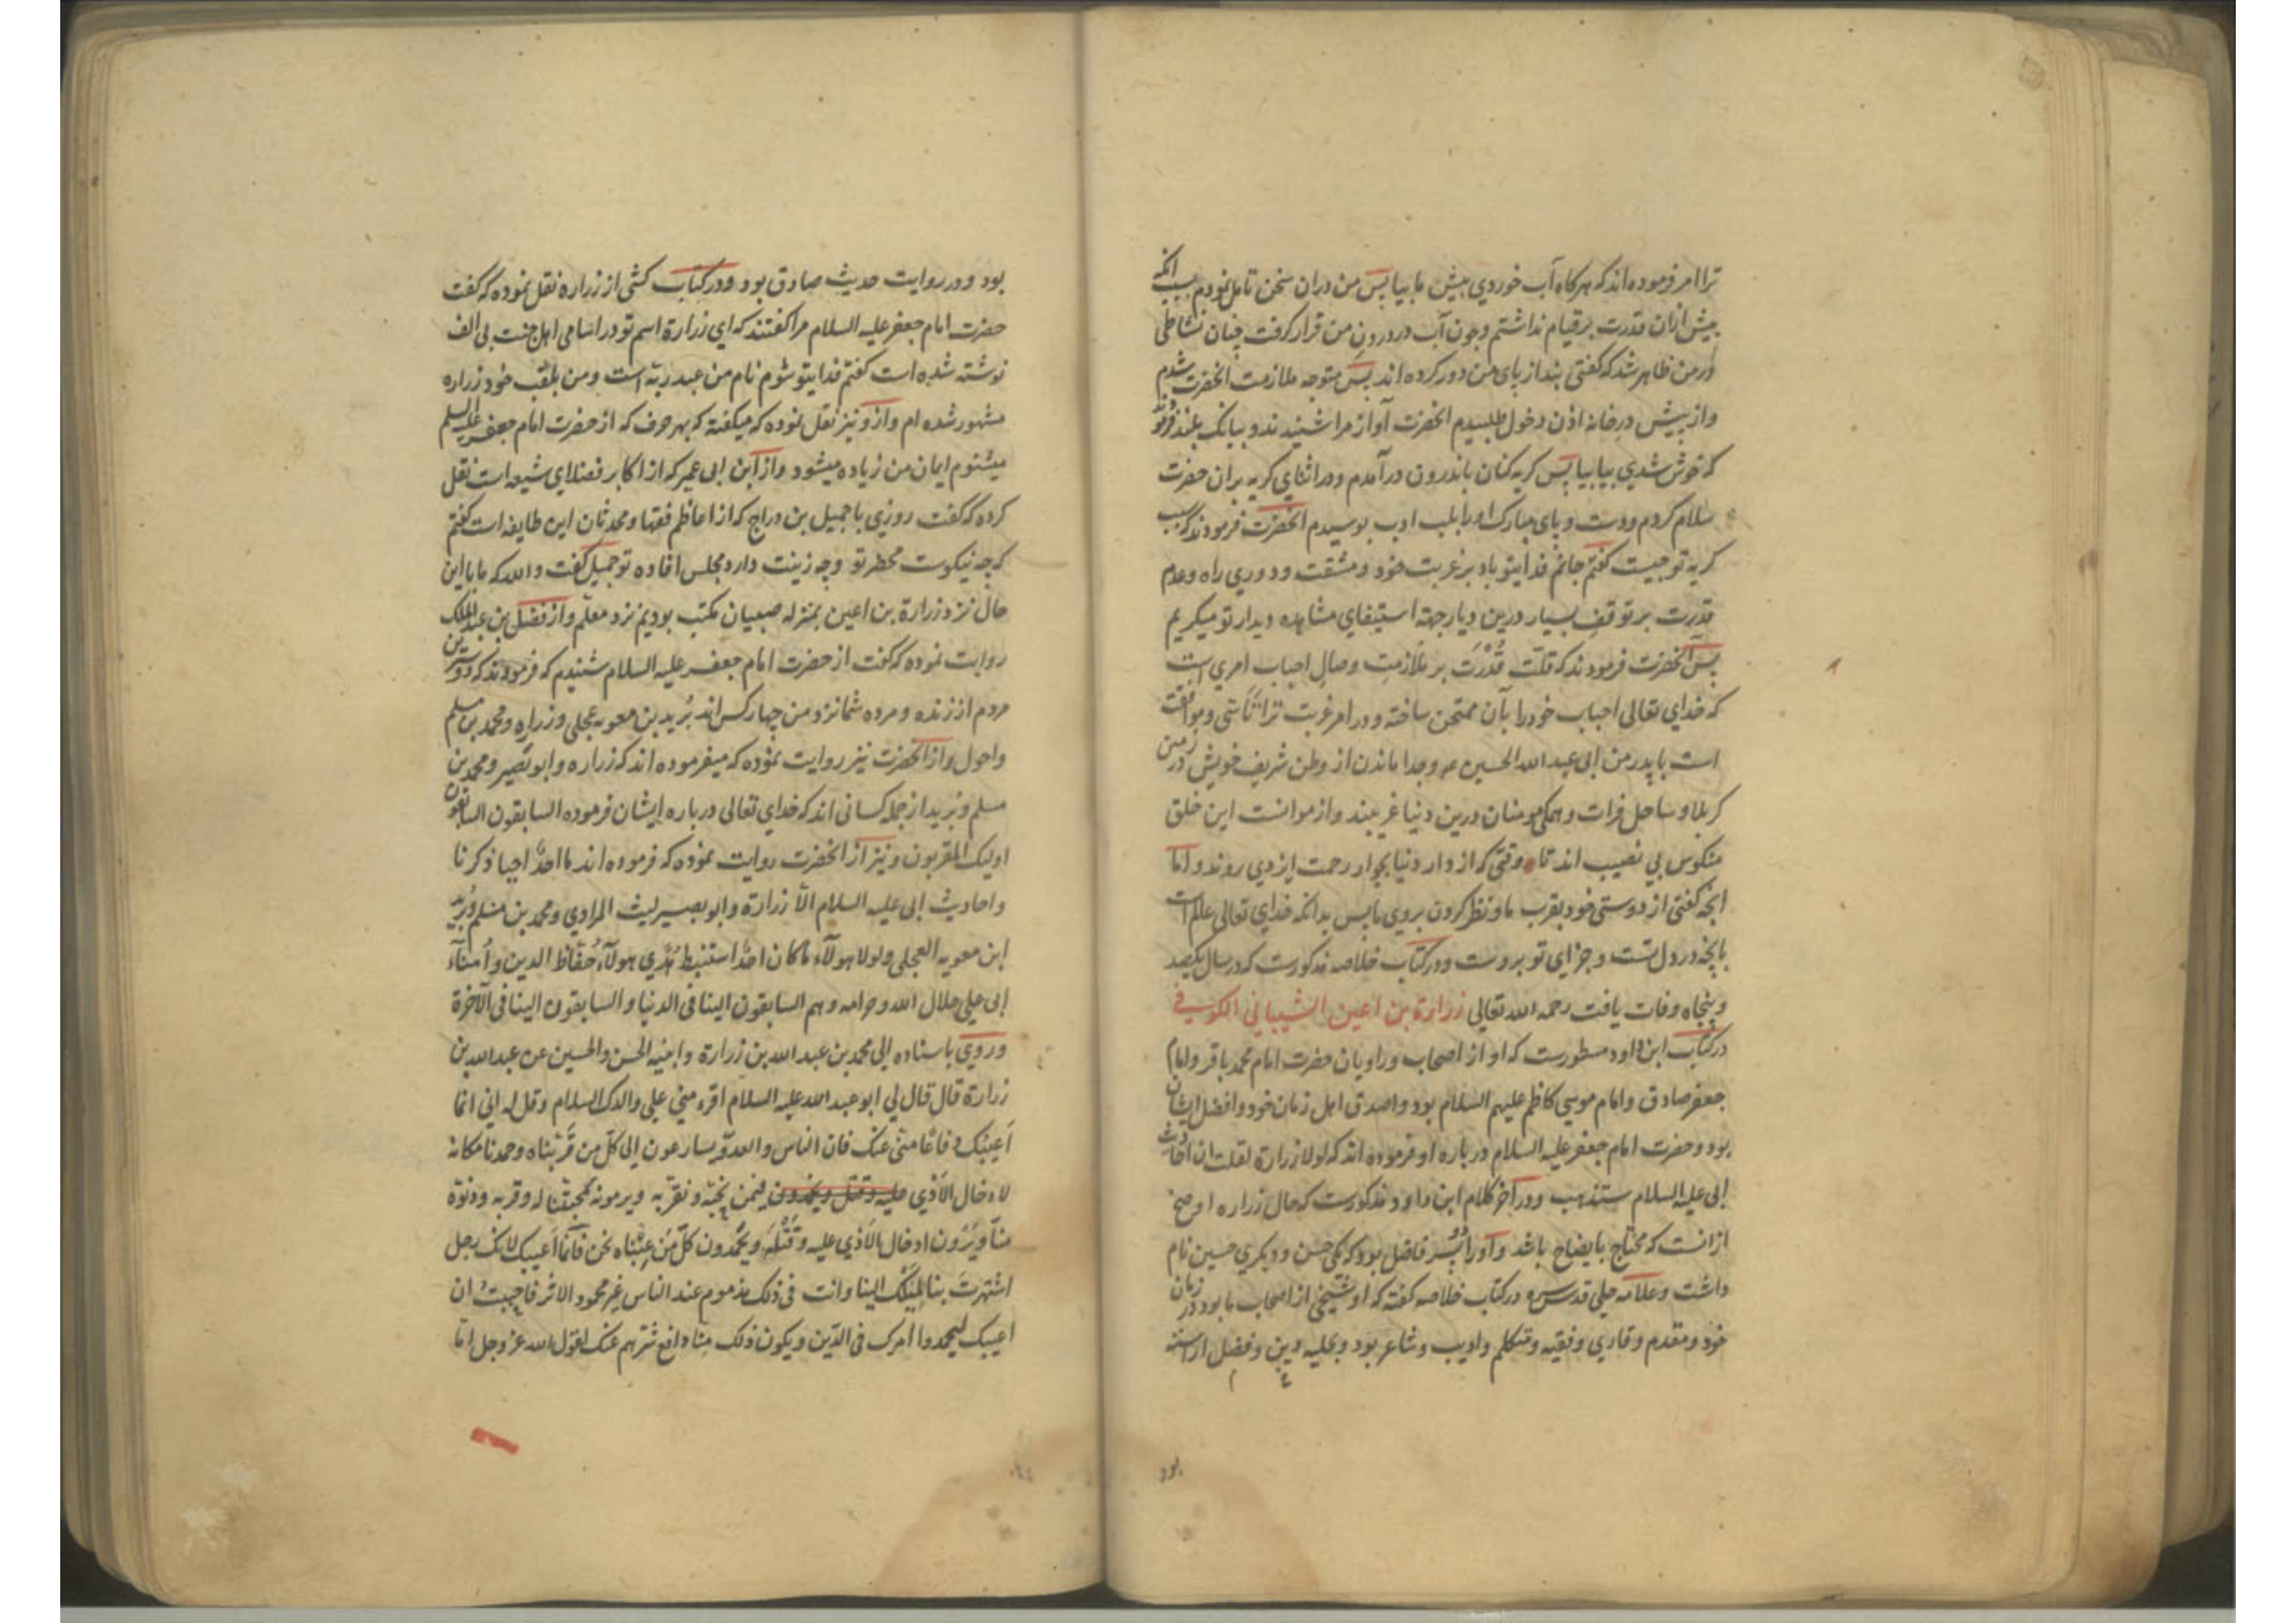 ترا امر فرموده‌اند که هرگاه آب خوردي پیش ما بیا پس من دران سخن تامل نمودم بسبب انکه
پیش ازان قدرت بر قیام نداشتم وچون آب در درون من قرار گرفت چنان نشاطی
در من ظاهر شد که گفتی بند از پای من دور کرده اند پس متوجه ملازمت انحضرت شدم
واز پیش درخانه اذن دخول طلبیدم انحضرت آواز مرا شنیدند و ببانک بلند فرمود
که خوش شدي بیا بیا پس گریه کنان باندرون درآمدم ودر اثنای گریه بران حضرت
سلام کردم ودست و پای مبارک او را بلب ادب بوسیدم انحضرت فرمودند که سبب
گریه تو چیست گفتم جانم فدایتو باد بر غربت خود و مشقت و دوري راه وعدم
قدرت بر توقف بسیار درین دیار جهته استیفای مشاهده دیدار تو میگریم
پس آنحضرت فرمودند که قلت قُدْرَت بر ملازمت وصال احباب امري است
که خداي تعالی احباب خود را بآن ممتحن ساخته ودر امر غربت ترا تأسّی وموافقت
است با پدر من ابی عبد الله الحسین ع وجدا ماندن از وطن شریف خویش در زمین
کربلا و ساحل فرات وهمگی مومنان درین دنیا غریبند واز موانست این خلق
منکوس بی نصیب اند تا وقتی که از دار دنیا بجوار رحمت ایزدي روند واما
انچه گفتی از دوستی خود بقرب ما ونظر کردن بروي ما پس بدانکه خداي تعالی عالم است
بانچه در دل تست وجزاي تو بروست ودر کتاب خلاصه مذکورست که در سال یکصد
وپنجاه وفات یافت رحمه الله تعالی زرارة بن اعین الشیباني الکوفي
در کتاب ابن داود مسطورست که او از اصحاب وراویان حضرت امام محمد باقر وامام
جعفر صادق وامام موسي کاظم علیهم السلام بود واصدق اهل زمان خود وافضل ایشان
بود وحضرت امام جعفر علیه السلام درباره او فرموده اند که لولا زرارة لقلت ان احادیث
ابی علیه السلام ستذهب ودر آخر کلام ابن داود مذکورست که حال زراره اوضح
ازانست که محتاج بایضاح باشد واورا دو پسر فاضل بود که یکی حسن ودیگري حسین نام
داشت وعلامه حلي قدس سره در کتاب خلاصه گفته که او شیخی از اصحاب ما بود در زمان
خود ومقدم وقاري وفقیه ومتکلم وادیب وشاعر بود وبحلیه دین وفضل اراسته
بود
بود ودر روایت حدیث صادق بود ودر کتاب کشی از زراره نقل نموده که گفت
حضرت امام جعفر علیه السلام مرا گفتند که اي زرارة اسم تو در اسامی اهل جنت بی الف
نوشته شده است گفتم فدایتو شوم نام من عبد ربّه است ومن بلقب خود زراره
مشهور شده ام واز و نیز نقل نموده که میگفته که بهر حرف که از حضرت امام جعفر علیه السلم
میشنوم ایمان من زیاده میشود واز ابن ابی عمیر که از اکابر فضلاي شیعه است نقل
کرده که گفت روزي با جمیل بن دراج که از اعاظم فقها ومحدثان این طایفه است گفتم
که چه نیکوست محضر تو وچه زینت دارد مجلس افاده تو جمیل گفت والله که ما با این
حال نزد زرارة بن اعین بمنزله صبیان مکتب بودیم نزد معلّم واز فضل بن عبد الملک
روایت نموده که گفت از حضرت امام جعفر علیه السلام شنیدم که فرمودند که دوسترین
مردم از زنده ومرده شما نزد من چهار کس اند بُرید بن معویه عجلي وزراره ومحمد بن مسلم
واحول واز انحضرت نیز روایت نموده که میفرموده اند که زراره وابو بصیر ومحمد بن
مسلم وبرید از جمله کسانی اند که خداي تعالی درباره ایشان فرموده السابقون السابقون
اولیک المقربون ونیز از انحضرت روایت نموده که فرموده اند ما احدٌ احیا ذکرنا
واحادیث ابی علیه السلام الّا زرارة وابو بصیر لیث المرادي ومحمد بن مسلم وبُرید
ابن معویه العجلی ولولا هولآء ما کان احدٌ استنبط هُدًی هولآء حُفّاظ الدین واُمنآء
ابی علی حلال الله وحرامه وهم السابقون الینا فی الدنیا والسابقون الینا فی الآخرة
وروي باسناده الی محمد بن عبد الله بن زرارة وابنیه الحسن والحسین عن عبد الله بن
زرارة قال قال لی ابو عبد الله علیه السلام اقرء مني علی والدک السلام وقل له اني انما
اَعیبُک دفاعًا منّی عنک فان الناس والعدوّ یسارعون الی کلّ من قرّبناه وحمدنا مکانه
لادخال الاذي علیه وقتل ویحمدون فیمن نحبّه ونقرّبه ویرمونه لمحبّتنا له وقربه ودنوّه
منّا ویَرَون ادخال الاَذي علیه وقَتْلَه ویحمدون کلّ مَن عِبْناه نحن فانّما اَعیبک لانک رجل
اشتهرتَ بنا لمَیلک الینا وانت فی ذلک مذموم عند الناس غیر محمود الاثر فاحببتُ ان
اعیبک لیحمدوا امرک فی الدّین ویکون ذلک منّا دافع شرّهم عنک لقول الله عز وجل امّا